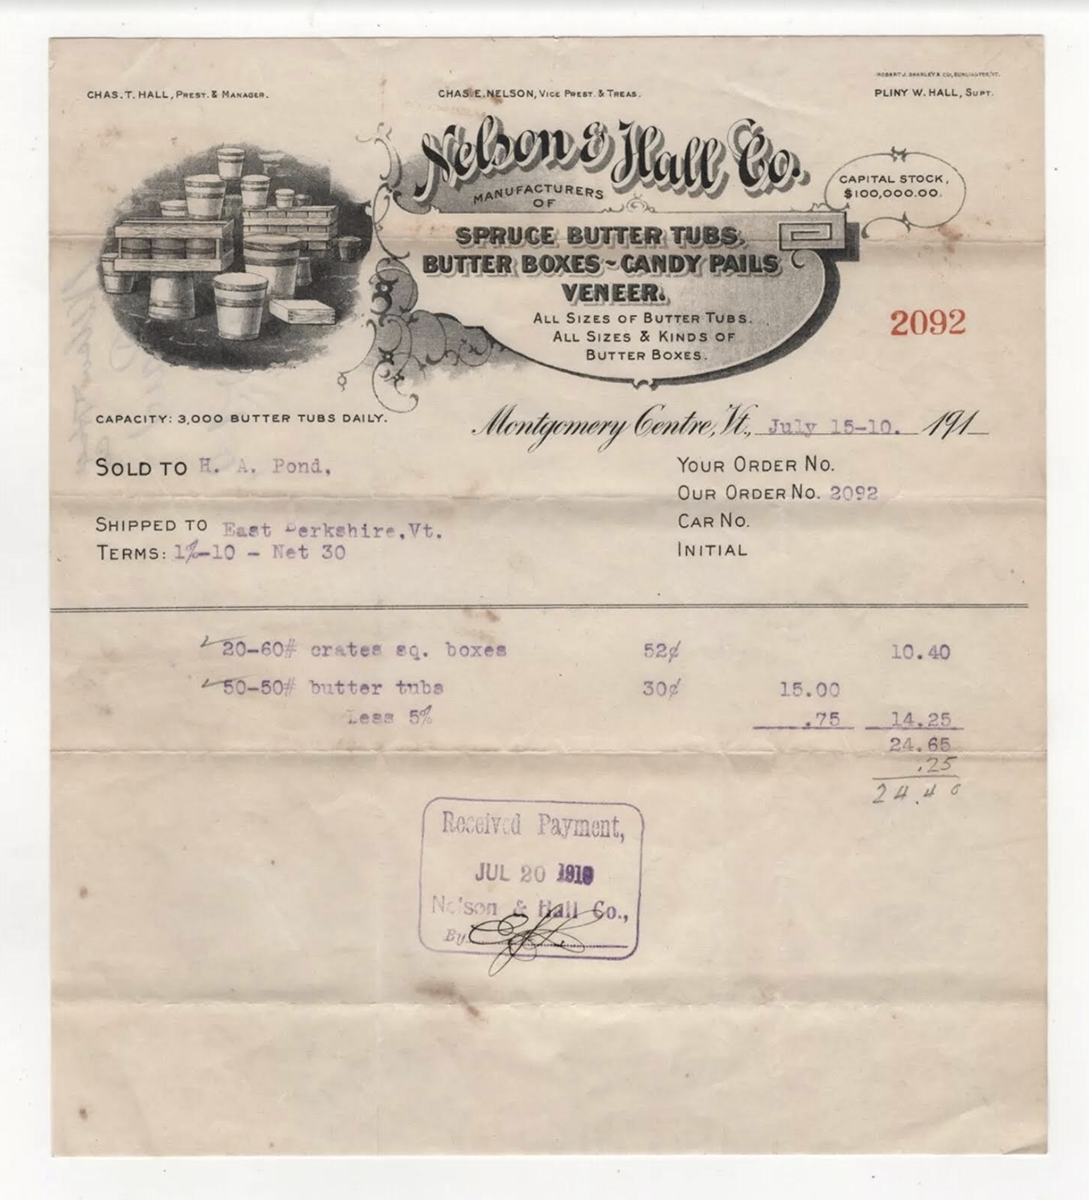 ROBERT J. SHANLEY & CO., BURLINGTON, VT.
CHAS. T. HALL, PREST. & MANAGER.
CHAS. E. NELSON, VICE PREST. & TREAS.
PLINY W. HALL, SUPT.
Nelson & Hall Co.
MANUFACTURERS
OF
CAPITAL STOCK,
$100,000.00.
SPRUCE BUTTER TUBS,
BUTTER BOXES ~ CANDY PAILS
VENEER.
ALL SIZES OF BUTTER TUBS.
ALL SIZES & KINDS OF
BUTTER BOXES.
2092
CAPACITY: 3,000 BUTTER TUBS DAILY.
Montgomery Centre, Vt., July 15-10. 191
SOLD TO H. A. Pond,
YOUR ORDER NO.
OUR ORDER NO. 2092
SHIPPED TO East Berkshire, Vt.
CAR NO.
TERMS: 1%-10 - Net 30
INITIAL
20-60# crates sq. boxes 52¢ 10.40
50-50# butter tubs 30¢ 15.00
Less 5% .75 14.25
24.65
.25
24.40
Received Payment,
JUL 20 1910
Nelson & Hall Co.,
By